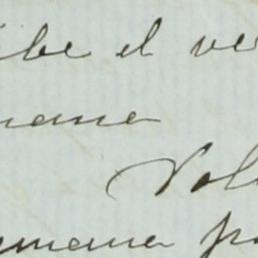 ibe el ve
nana
Vol
emana p